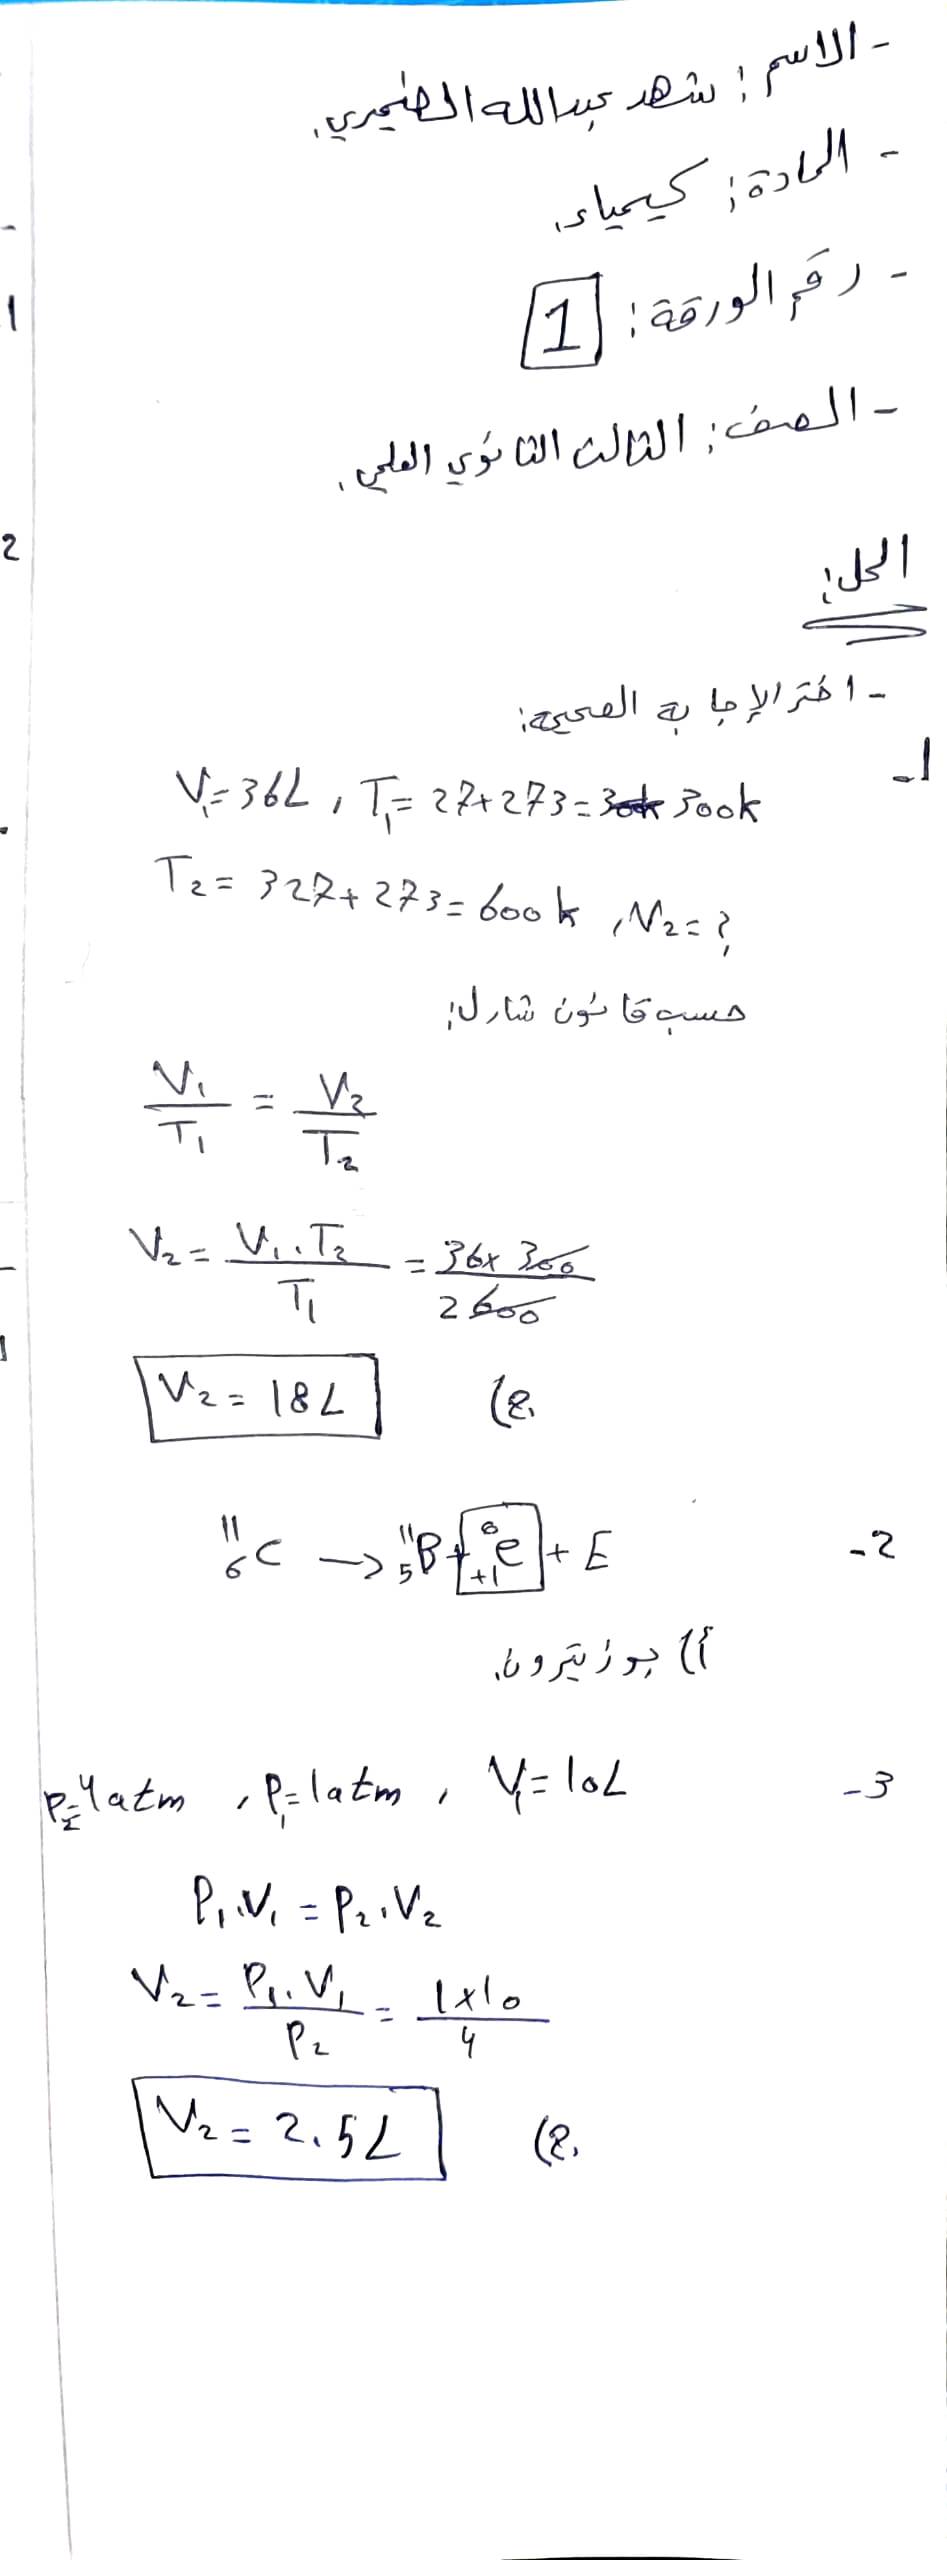 - الاسم: شهد عبدالله الضيمري.
- المادة: كيمياء.
- رقم الورقة: 1
- الصف: الثالث الثانوي العلمي.
الحل:
- اختر الإجابة الصحيحة:
1-
V₁=36L , T₁=27+273=300k
T₂=327+273=600k , V₂=?
حسب قانون شارل:
V₁/T₁ = V₂/T₂
V₂ = V₁.T₂/T₁ = 36x300/2 600
V₂ = 18L
2- ¹¹₆C → ¹¹₅B + ⁰₊₁e + E
أ) بوزيترون.
3- V₁=10L , P₁=1atm , P₂=4atm
P₁.V₁ = P₂.V₂
V₂ = P₁.V₁/P₂ = 1x10/4
V₂ = 2.5L